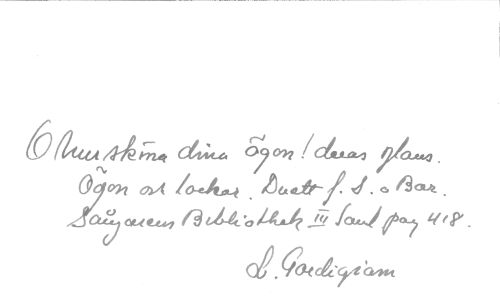 O hur sköna dina ögon! deras glans.
Ögon och lockar. Duett f. S. o Bar.
Sångarens Bibliothek III Saml pag 418.
L. Gordigiani